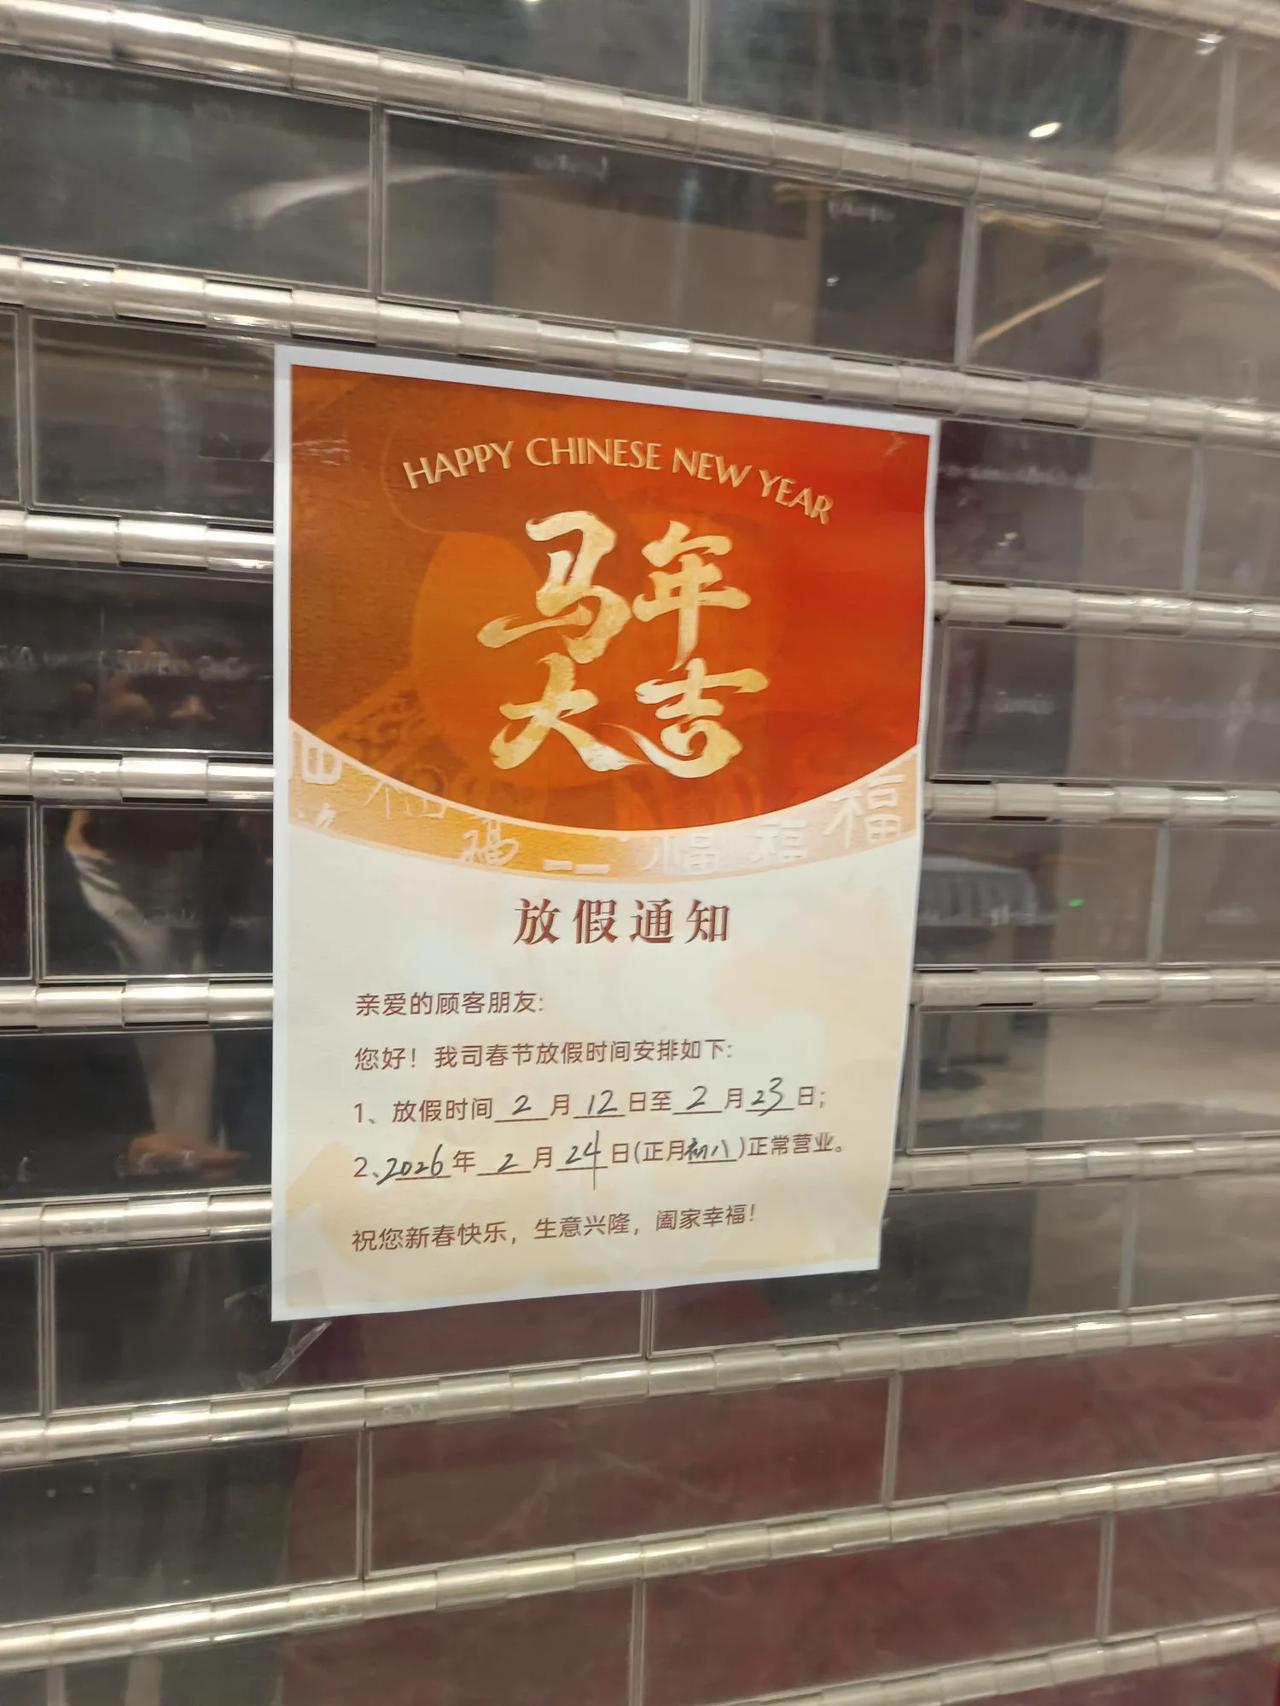 HAPPY CHINESE NEW YEAR
马年
大吉
福 福 福 福
放假通知
亲爱的顾客朋友:
您好！我司春节放假时间安排如下:
1、放假时间 2 月 12 日至 2 月 23 日;
2、2026 年 2 月 24 日(正月初八)正常营业。
祝您新春快乐，生意兴隆，阖家幸福！